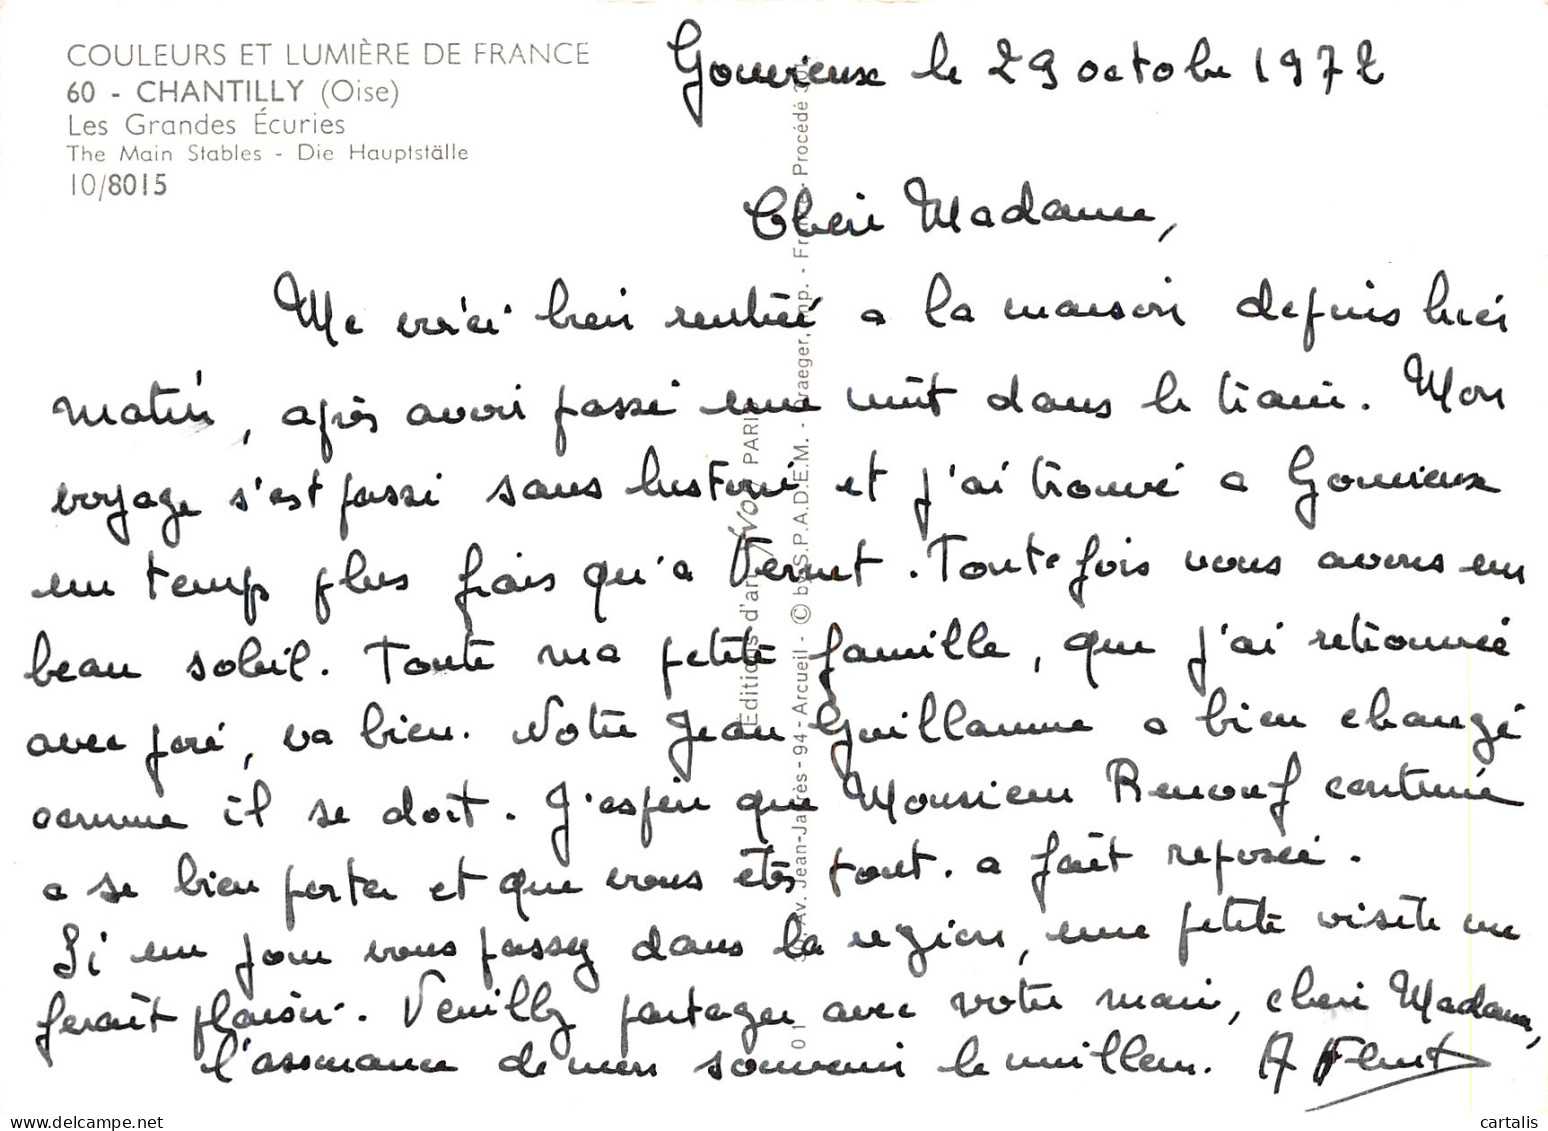 COULEURS ET LUMIÈRE DE FRANCE
60 - CHANTILLY (Oise)
Les Grandes Écuries
The Main Stables - Die Hauptställe
10/8015
Gouvieux le 29 octobre 1972
Chère Madame,
Me voici bien rentrée a la maison depuis hier
matin, après avoir passé une nuit dans le train. Mon
voyage s'est passé sans histoire et j'ai trouvé a Gouvieux
un temps plus frais qu'a Vernet. Toutefois nous avons un
beau soleil. Toute ma petite famille, que j'ai retrouvée
avec joie, va bien. Notre Jean Guillaume a bien changé
comme il se doit. J'espère que Monsieur Renouf continue
a se bien porter et que vous êtes tout a fait reposée.
Si un jour vous passez dans la région, une petite visite me
ferait plaisir. Veuillez partager avec votre mari, chère Madame,
l'assurance de mon souvenir le meilleur. A
Editions d'art Yvon PARIS
Av. Jean-Jaurès - 94 - Arcueil - © by S.P.A.D.E.M. - Draeger, imp. - Procédé 301
delcampe.net
cartalis